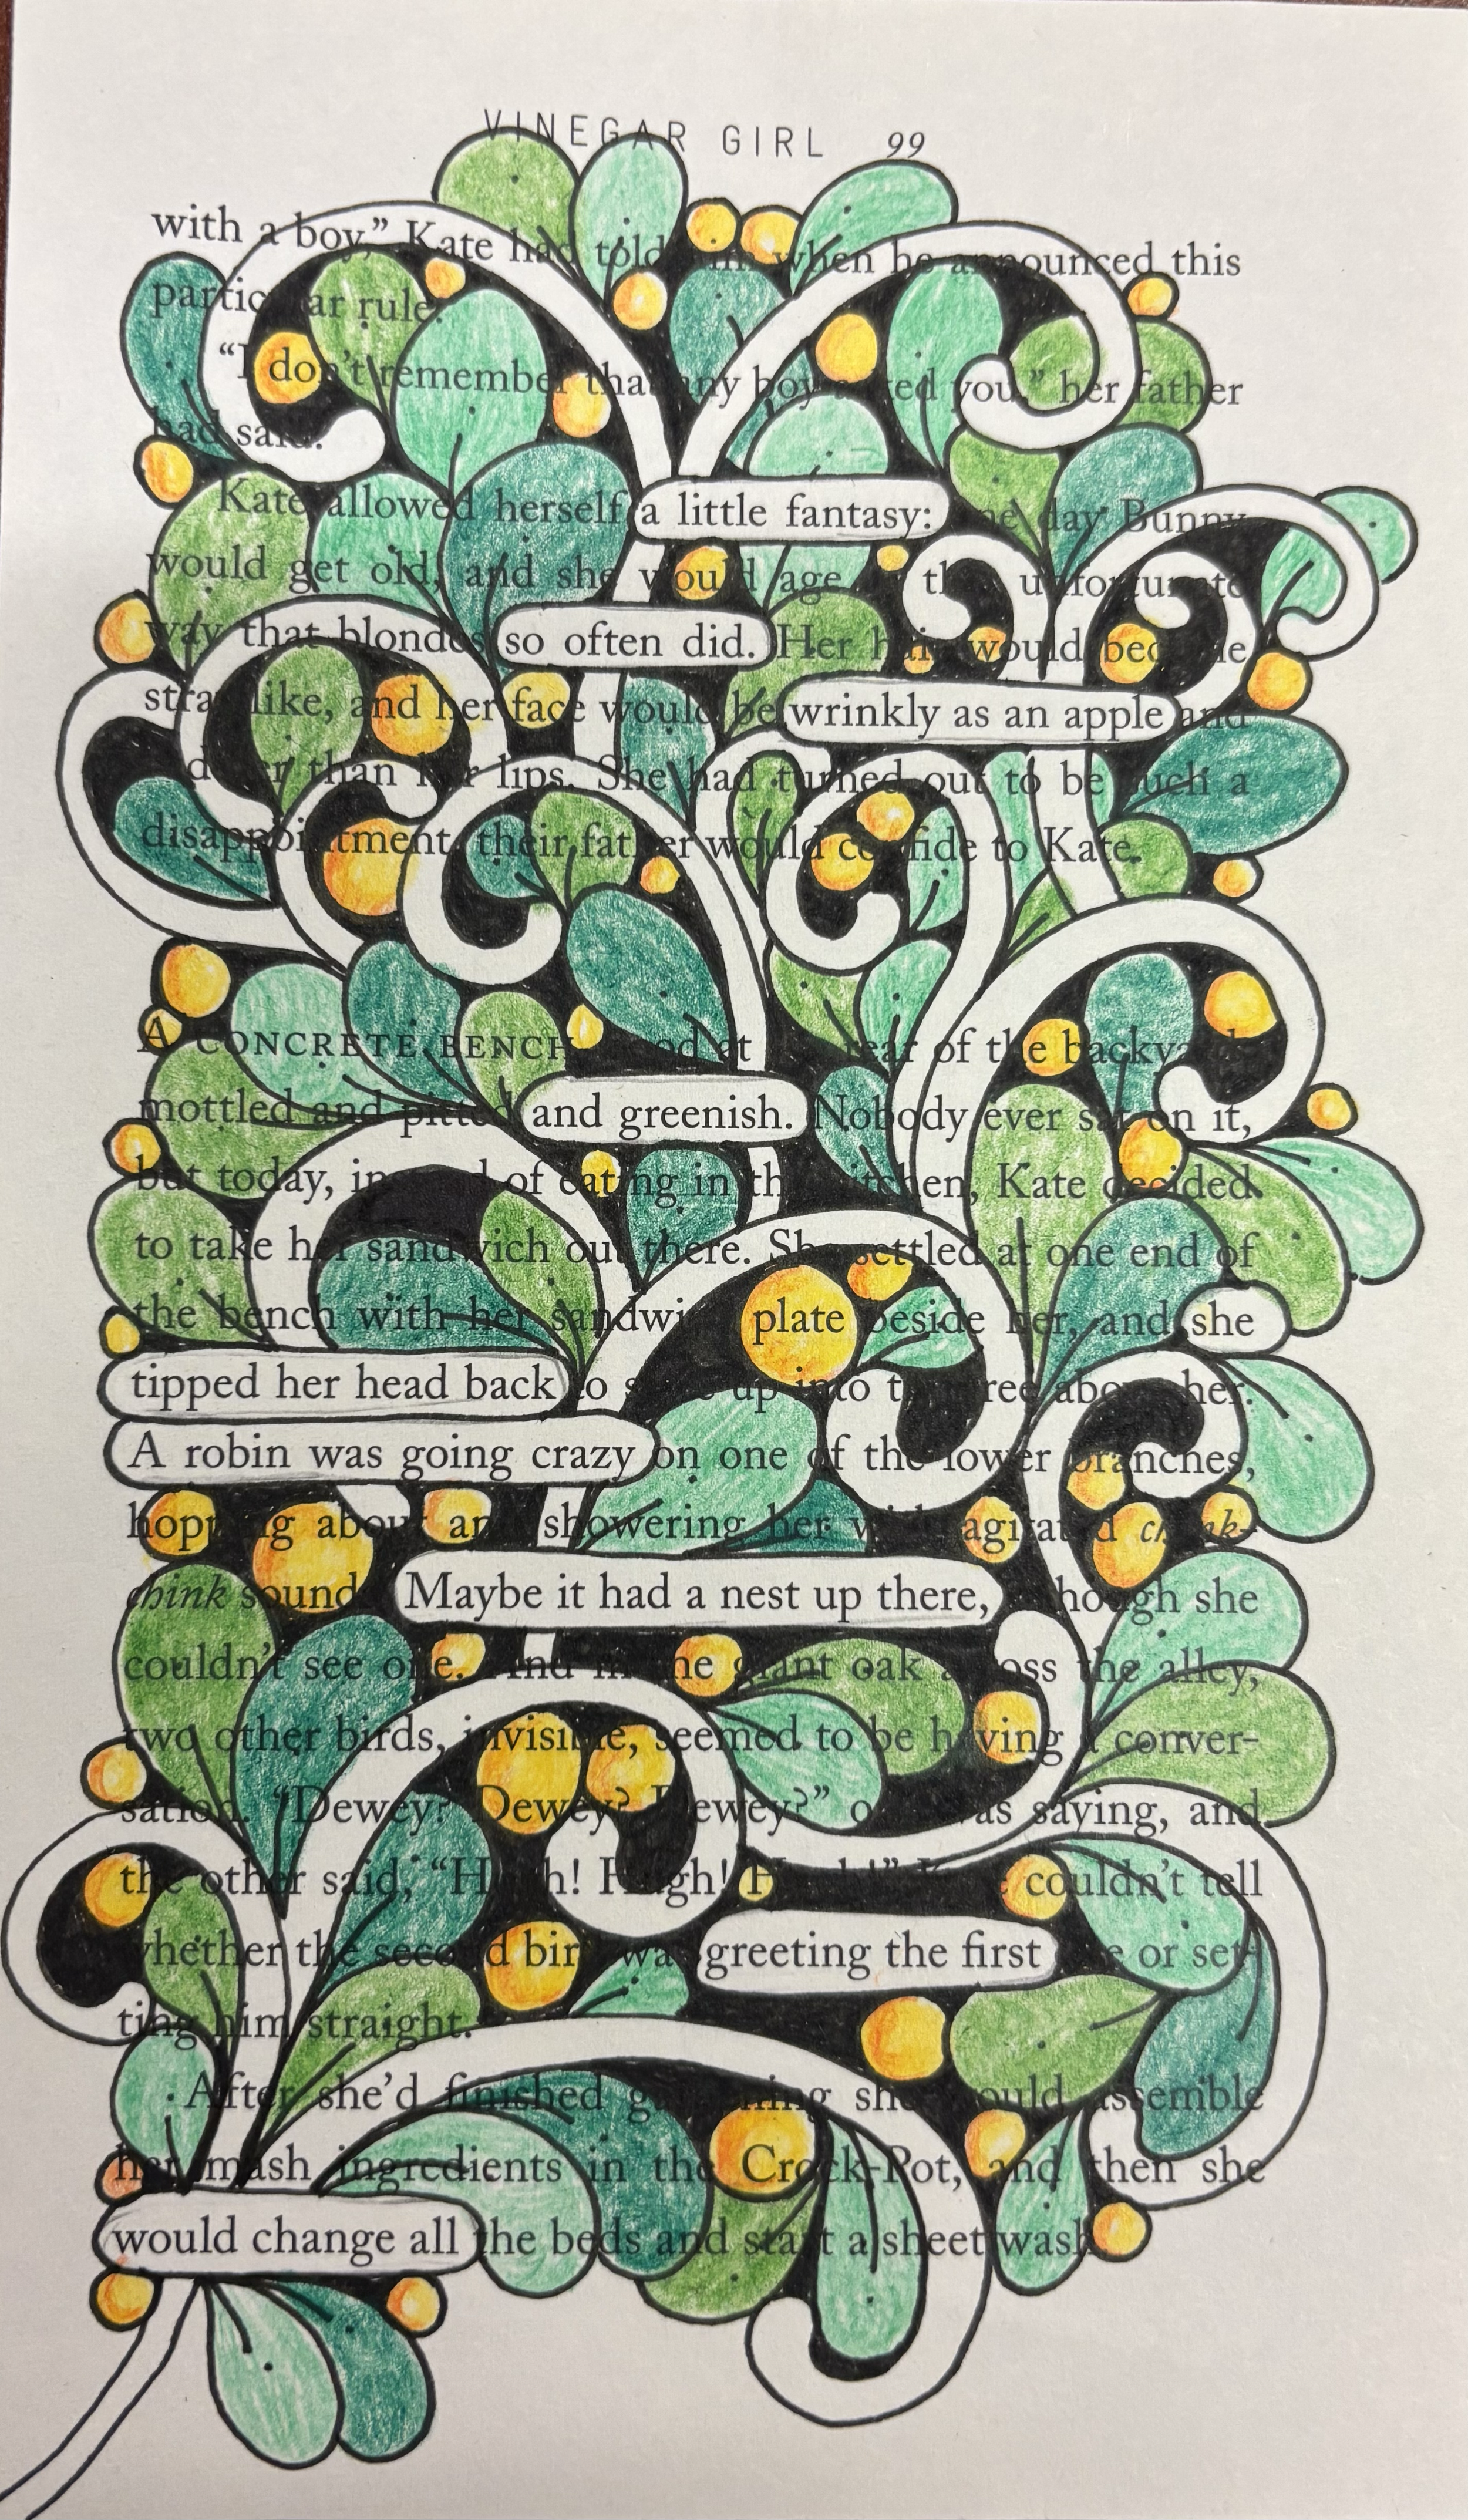 VINEGAR GIRL 99
with a boy,” Kate had told him when he announced this
particular rule.
“I don’t remember that any boy asked you,” her father
had said.
Kate allowed herself a little fantasy: One day Bunny
would get old, and she would age in the unfortunate
way that blondes so often did. Her hair would become
strawlike, and her face would be wrinkly as an apple and
than her lips. She had turned out to be such a
disappointment, their father would confide to Kate.
A CONCRETE BENCH stood at the rear of the backyard,
mottled and pitted and greenish. Nobody ever sat on it,
but today, instead of eating in the kitchen, Kate decided
to take her sandwich out there. She settled at one end of
the bench with her sandwich plate beside her, and she
tipped her head back to stare up into the tree above her.
A robin was going crazy on one of the lower branches,
hopping about and showering her with agitated chink-
chink sounds. Maybe it had a nest up there, though she
couldn’t see one. And in the giant oak across the alley,
two other birds, invisible, seemed to be having a conver-
sation. “Dewey? Dewey? Dewey?” one was saying, and
the other said, “Hugh! Hugh! Hugh!” Kate couldn’t tell
whether the second bird was greeting the first one or set-
ting him straight.
After she’d finished gardening she would assemble
her mash ingredients in the Crock-Pot, and then she
would change all the beds and start a sheet wash.